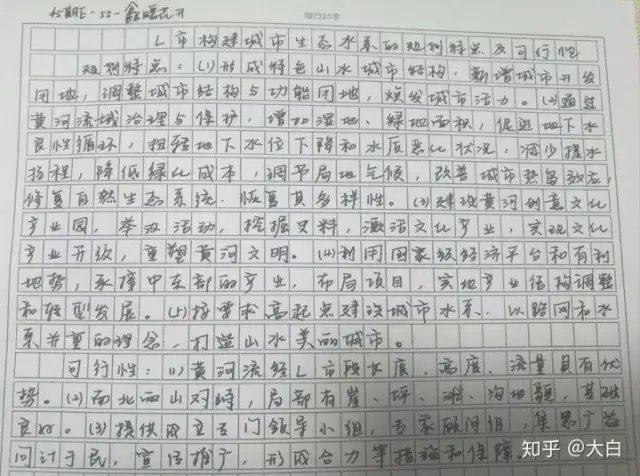 45期E-55-鑫暖花开
每行25字
L市构建城市生态水系的规划特点及可行性
规划特点：(1)形成特色山水城市结构，新增城市开发
用地，调整城市结构与功能用地，焕发城市活力。(2)通过
黄河流域治理与保护，增加湿地、绿地面积，促进地下水
良性循环，扭转地下水位下降和水质恶化状况，减少提水
扬程，降低绿化成本，调节局地气候，改善城市热岛效应，
修复自然生态系统，恢复其多样性。(3)建设黄河创意文化
产业园，举办活动，挖掘史料，激活文化产业，实现文化
产业开放，重塑黄河文明。(4)利用国家级经济平台和有利
地势，承接中东部的产业，布局项目，实地产业结构调整
和转型发展。(5)按需求高起点建设城市水系，以路网和水
系并重的理念，打造山水美丽城市。
可行性：(1)黄河流经L市段长度、高度、流量具有优
势。(2)南北两山对峙，局部有崖、坪、滩、沟地貌，基础
良好。(3)提供成立专门领导小组，专家顾问组，集思广益
问计于民，宣传推广，形成合力等措施和保障。
知乎 @大白